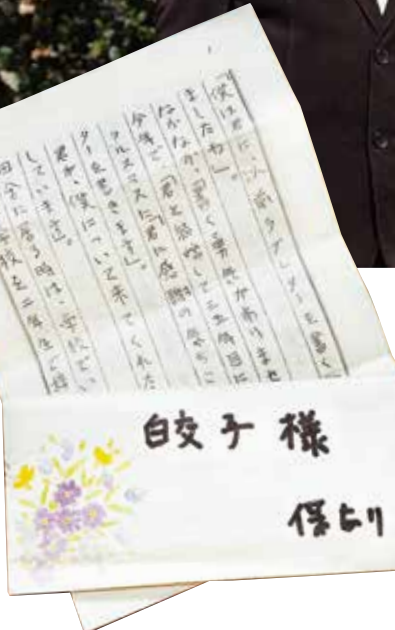 「僕は君に、以前ラブレターを書く
ましたね」。
なかなか、書く勇気がありませ
今年で「君と結婚して三五年目に
クリスマスに「君に感謝の気もち
ターを書きます」。
君が、僕について来てくれた
しています」。
田舎に居る時は、学校でい
学校を二年生で
皎子様
保より